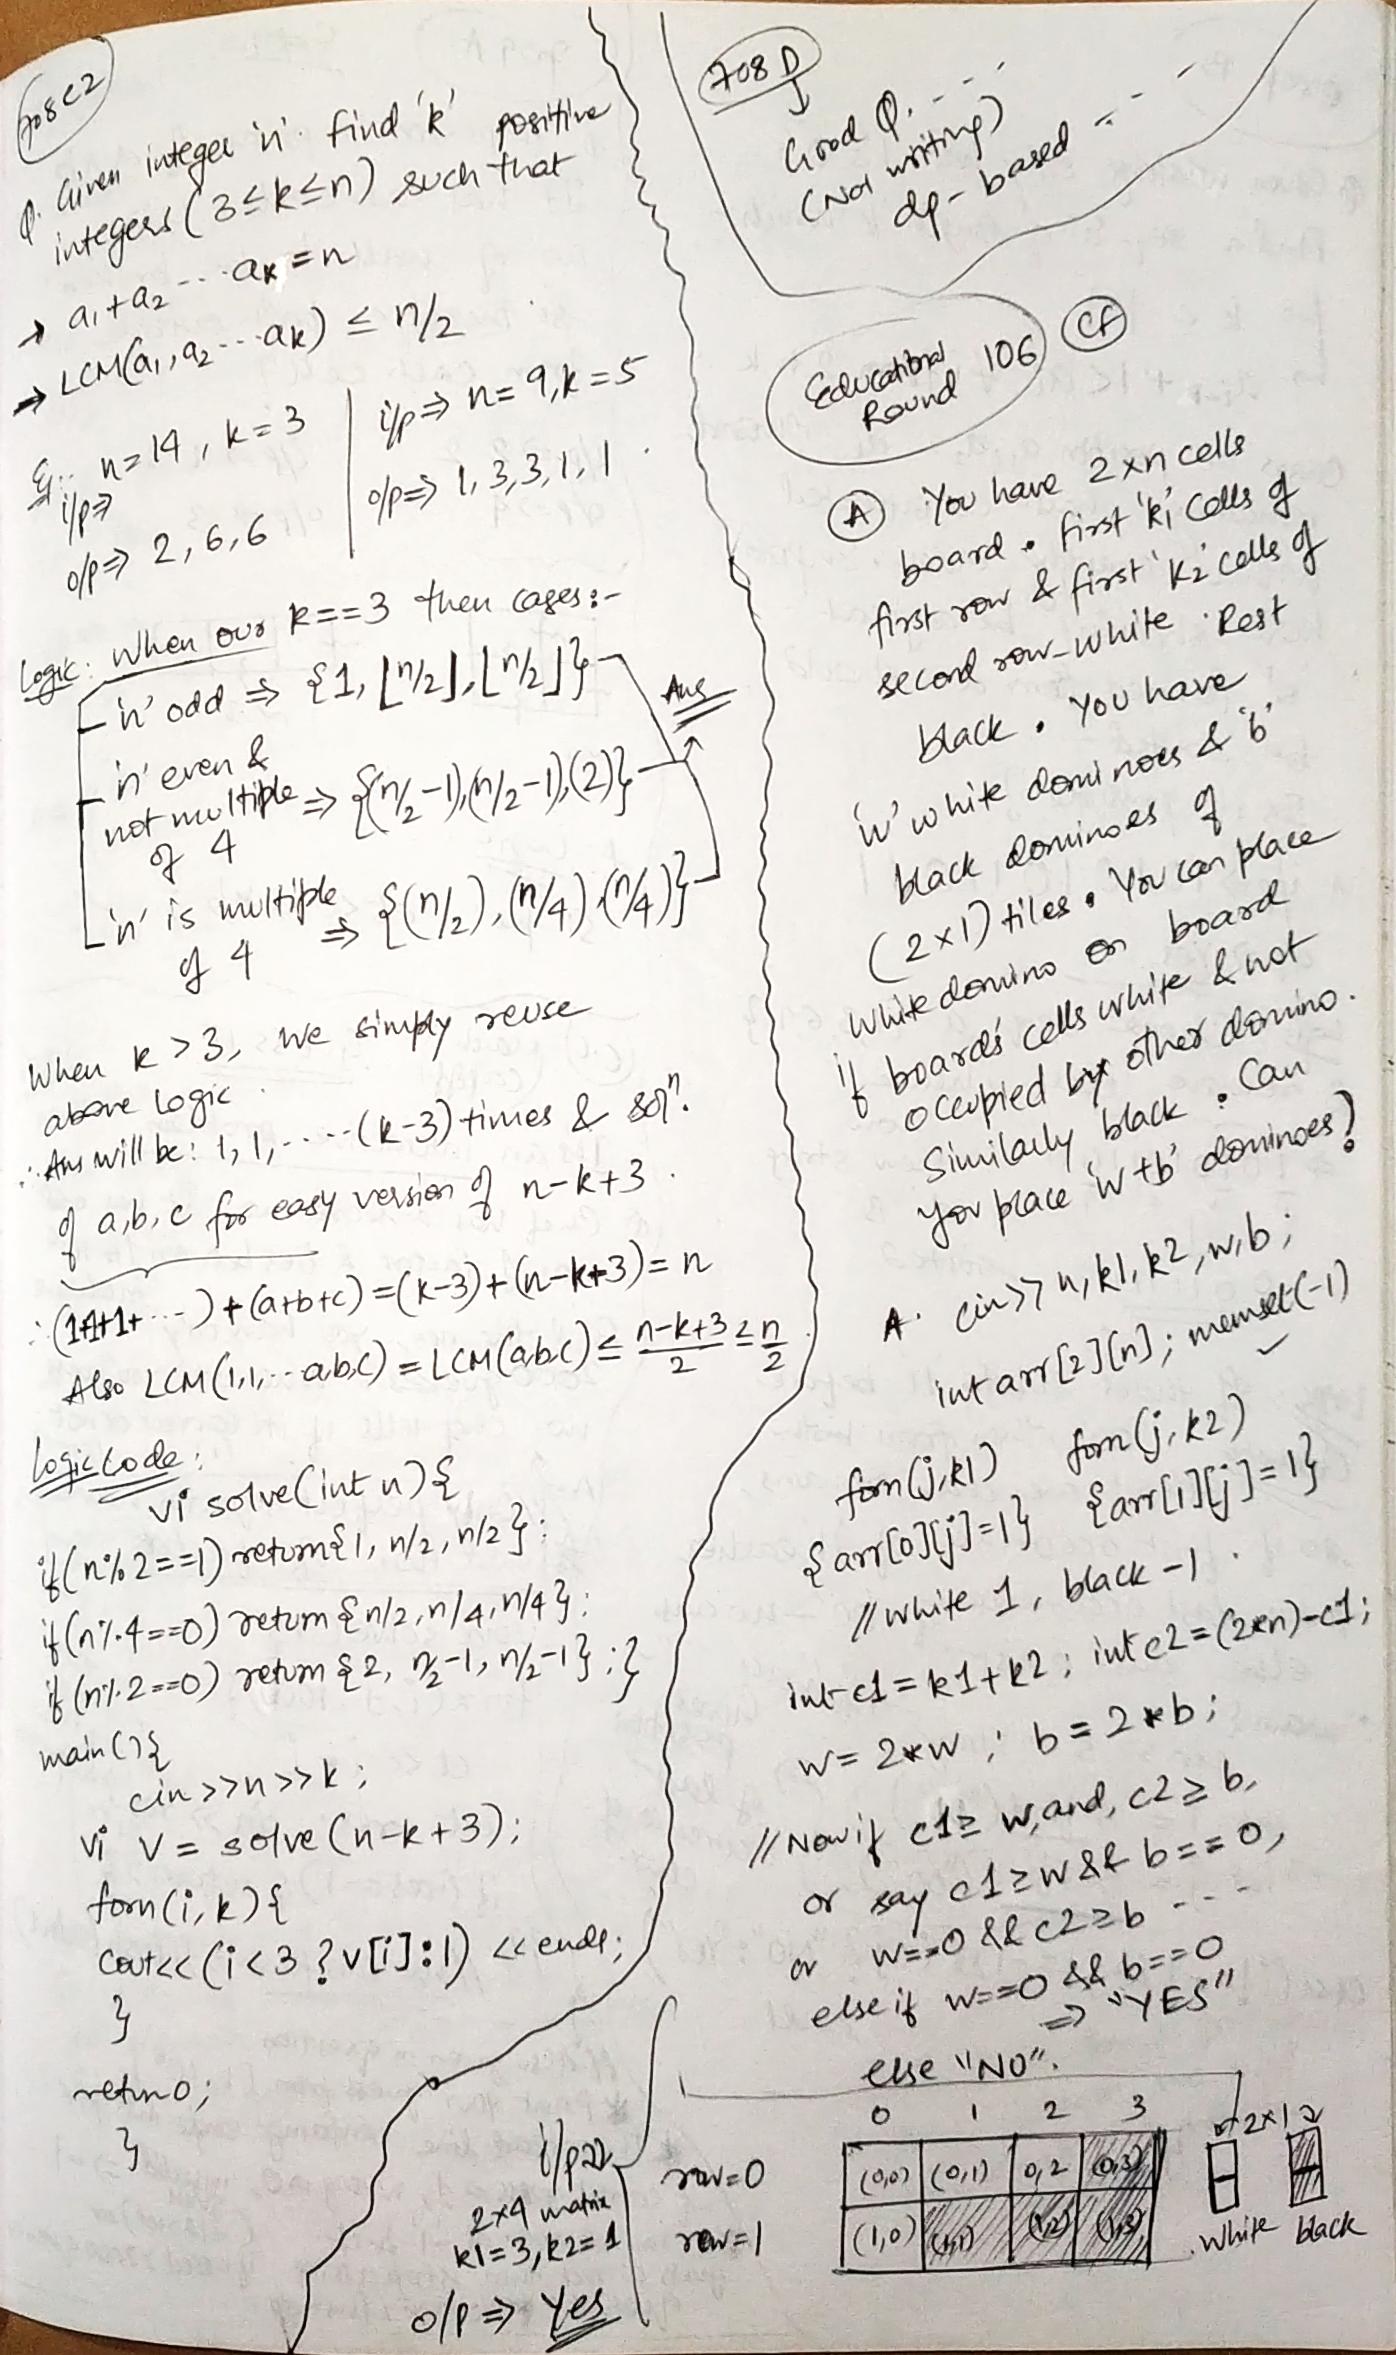 708 C2
Q. Given integer 'n'. find 'k' positive
integers (3≤k≤n) such that
→ a1+a2 --- ak = n
→ LCM(a1, a2 --- ak) ≤ n/2
Eg:- n=14, k=3
i/p⇒
o/p⇒ 2, 6, 6
i/p⇒ n=9, k=5
o/p⇒ 1, 3, 3, 1, 1
Logic: When our k==3 then cases:-
'n' odd ⇒ {1, ⌊n/2⌋, ⌊n/2⌋}
Ans
'n' even &
not multiple ⇒ {(n/2-1),(n/2-1),(2)}
of 4
'n' is multiple
of 4 ⇒ {(n/2), (n/4) (n/4)}
When k>3, we simply reuse
above logic.
∴ Ans will be: 1, 1, ----- (k-3) times & solⁿ.
of a,b,c for easy version of n-k+3.
∴ (1+1+1+ ---) + (a+b+c) = (k-3)+(n-k+3) = n
Also LCM(1,1,--a,b,c) = LCM(a,b,c) ≤ n-k+3/2 ≤ n/2
Logic Code:
vi solve(int n){
if(n%2==1) return{1, n/2, n/2};
if(n%4==0) return {n/2, n/4, n/4};
if(n%2==0) return {2, n/2-1, n/2-1};}
main(){
cin>>n>>k;
vi v = solve(n-k+3);
forn(i,k){
cout<<(i<3?v[i]:1) <<endl;
}
return 0;
}
708 D
↓
Good Q. ---
(Not writing)
dp-based ---
Educational
Round 106
CF
A You have 2xn cells
board. first 'k1' cells of
first row & first 'k2' cells of
second row-white. Rest
black. You have
'w' white dominoes & 'b'
black dominoes of
(2x1) tiles. You can place
white domino on board
if boards' cells white & not
occupied by other domino.
Similarly black. Can
you place 'w+b' dominoes?
A. cin>>n,k1,k2,w,b;
int arr[2][n]; memset(-1)
forn(j,k1) forn(j,k2)
{arr[0][j]=1} {arr[1][j]=1}
// White 1, black -1
int c1=k1+k2; int c2=(2*n)-c1;
w=2*w; b=2*b;
// Now if c1≥w, and, c2≥b,
or say c1≥w && b==0,
or w==0 && c2≥b ---
else if w==0 && b==0
⇒ "YES"
else "NO".
i/p⇒
2x4 matrix
k1=3, k2=1
o/p ⇒ Yes
0 1 2 3
row=0 (0,0) (0,1) 0,2 (0,3)
row=1 (1,0) (1,1) (1,2) (1,3)
2x1
White black